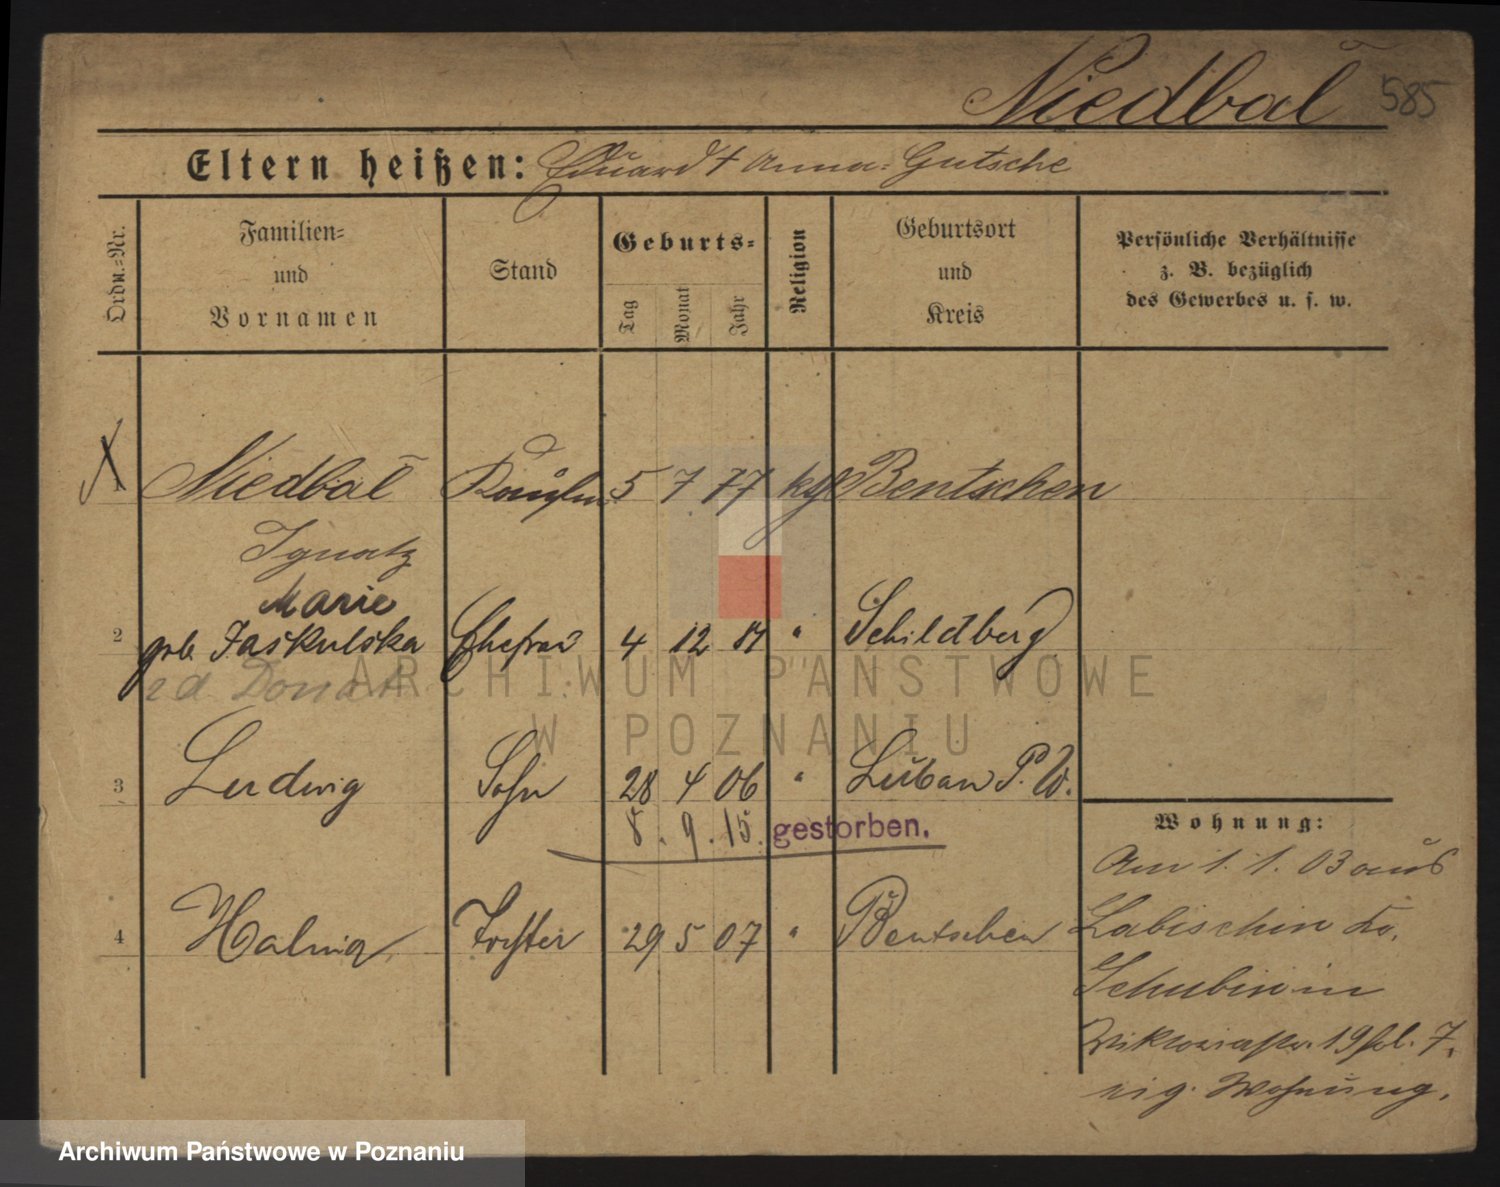 Niedbal 585
Eltern heißen: Eduard + Anna Gutsche
Ordn.-Nr.
Familien-
und
Vornamen
Stand
Geburts-
Tag
Monat
Jahr
Religion
Geburtsort
und
Kreis
Persönliche Verhältnisse
z. B. bezüglich
des Gewerbes u. s. w.
Niedbal 5 7 77 kath Bentschen
Ignatz
Marie
2 geb. Jaskulska Ehefrau 4 12 " Schildberg
ARCHIWUM PAŃSTWOWE
W POZNANIU
3 Ludwig Sohn 28 4 06 " Luban P. W.
8. 9. 15. gestorben.
4 Halina Tochter 29 5 07 " Bentschen
Wohnung:
Am 1. 1. 03 aus
Labischin Kr.
Schubin in
Viktoriastr. 19 7.
eig. Wohnung.
Archiwum Państwowe w Poznaniu